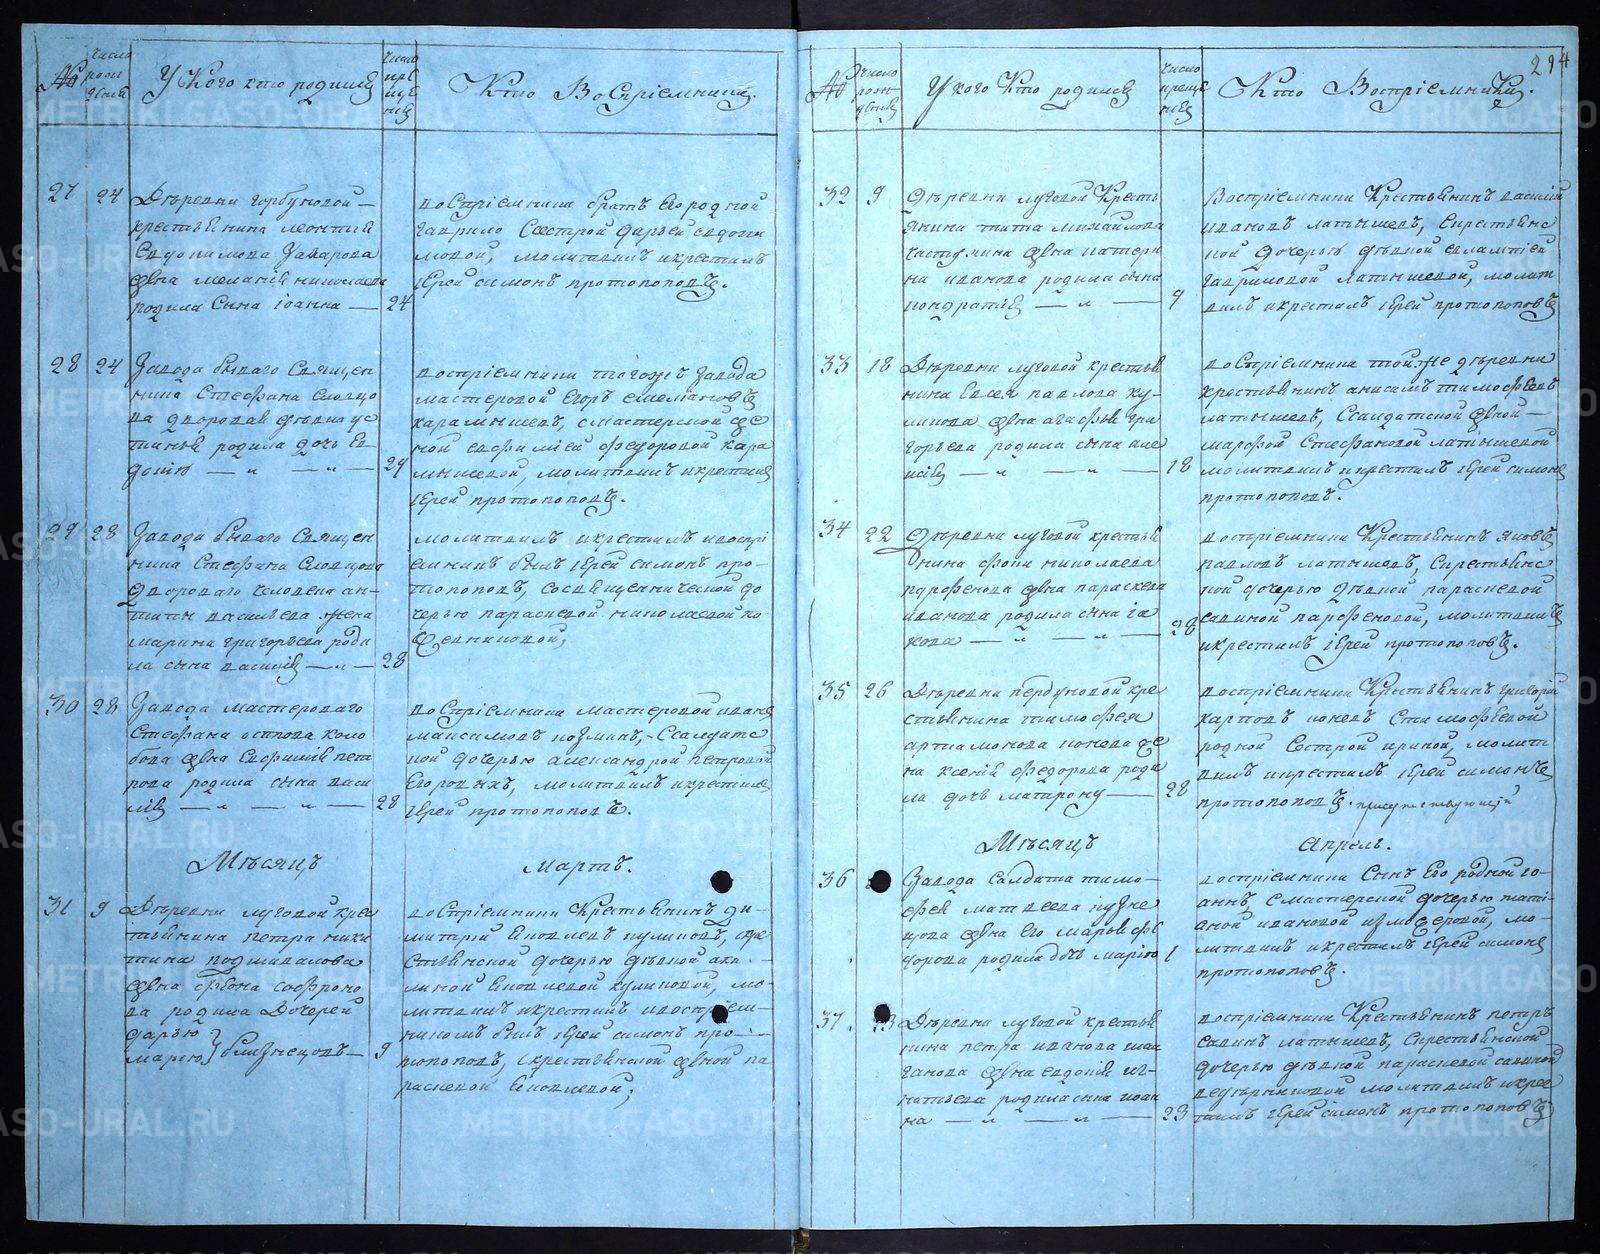 №
Число рождения
У Кого кто родился
Число крещения
Кто Воспріемники.
27 24
Деревни горбуновой
крестьянина леонтия
Евдокимова Захарова
жена меланія николаева
родила Сына іоанна — 24
воспріемники братъ Его родной
гаврило Сестрой дарьей евдоки
мовой, молитвилъ икрестилъ
іерей симонъ протопоповъ.
28 24
Завода бываго Священ
ника Стефана Словцо
ва дворовая девка ус
тинья родила дочь Ев
докію — " — " — 24
воспріемники тогожъ завода
мастеровой Егоръ емеліановъ
карамышевъ, смастерской же
ной евфимией федоровой кара
мышевой, молитвилъ икрестилъ
іерей протопоповъ.
29 28
Завода бываго Священ
ника Стефана Словцова
двороваго человека ан-
типы васильева жена
марина григорьева роди
ла сына василія — " — 28
молитвилъ икрестилъ ивоспрі
емникъ былъ іерей симонъ про-
топоповъ, сосвященической до
черью параскевой николаевой ко
жевниковой;
30 28
Завода мастероваго
Стефана осипова коло
бова жена Евфимія пет
рова родила сына васи
лія — " — " — 28
воспріемники мастеровой иванъ
максимовъ козминъ, Ссалдатс
кой дочерью александрой петровой
молитвилъ икрестилъ
іерей протопоповъ.
Мѣсяцъ мартъ.
31 9
Деревни луговой крес
тьянина петра ники
тина подшивалова
жена фёкла софроно
ва родила Дочерей
дарью
марию } близнецовъ — 9
воспріемники Крестьянинъ ди-
митрій яковлевъ куликовъ, скре
стьянской дочерью девкой аку-
линой яковлевой куликовой, мо-
литвилъ икрестилъ ивоспріем-
никомъ былъ іерей симонъ про-
топоповъ, скрестьянской женой па
раскевой яковлевой;
294
№
Число рождения
У кого Кто родился
Число крещения
Кто Воспріемники.
32 9
Деревни луговой Кресть
янина тита михайлова
жена катери
на иванова родила сына
кондратия — " — 9
Воспріемники Крестьянинъ василій
ивановъ латышевъ, Скрестьянс
кой дочерью девкой евлампией
гавриловой латышевой, молит
вилъ икрестилъ іерей протопоповъ
33 18
Деревни луговой крестья
нина Евсея павлова ку-
ликова жена агафья гри
горьева родила сына але
ксія — " — " — 18
воспріемники той же деревни
крестьянинъ анисимъ тимофеевъ
латышевъ, Ссалдатской женой
марфой Стефановой латышевой
молитвилъ икрестилъ іерей симонъ
протопоповъ.
34 22
Деревни луговой крестья
нина фоки николаева
парфенова жена параскева
иванова родила сына іа
кова — " — " — 28
воспріемники Крестьянинъ яковъ
павловъ латышевъ, Скрестьянс
кой дочерью девкой параскевой
савиной парфеновой, молитвилъ
икрестилъ іерей протопоповъ.
35 26
Деревни горбуновой кре
стьянина тимофея
артамонова конева же
на ксенія федорова роди
ла дочь матрону — 28
воспріемники Крестьянинъ григорій
карповъ коневъ Стимофеевой
родной Сестрой ириной, молит
вилъ икрестилъ іерей симонъ
протопоповъ.
Мѣсяцъ Апрель.
36
Завода Салдата тимо-
фея матвеева кузне
цова жена Его марья фе
дорова родила дочь марію 1
воспріемники Сынъ Его родной іо-
аннъ, Смастерской дочерью тати-
аной ивановой мо-
литвилъ икрестилъ іерей симонъ
протопоповъ.
37
Деревни луговой крестья
нина петра иванова
жена евдокия иг-
натьева родила сына иоан
на — " — " — 23
воспріемники Крестьянинъ петръ
савинъ латышевъ, Скрестьянской
дочерью девкой параскевой савиной
молитвилъ икрес
тилъ іерей симонъ протопоповъ